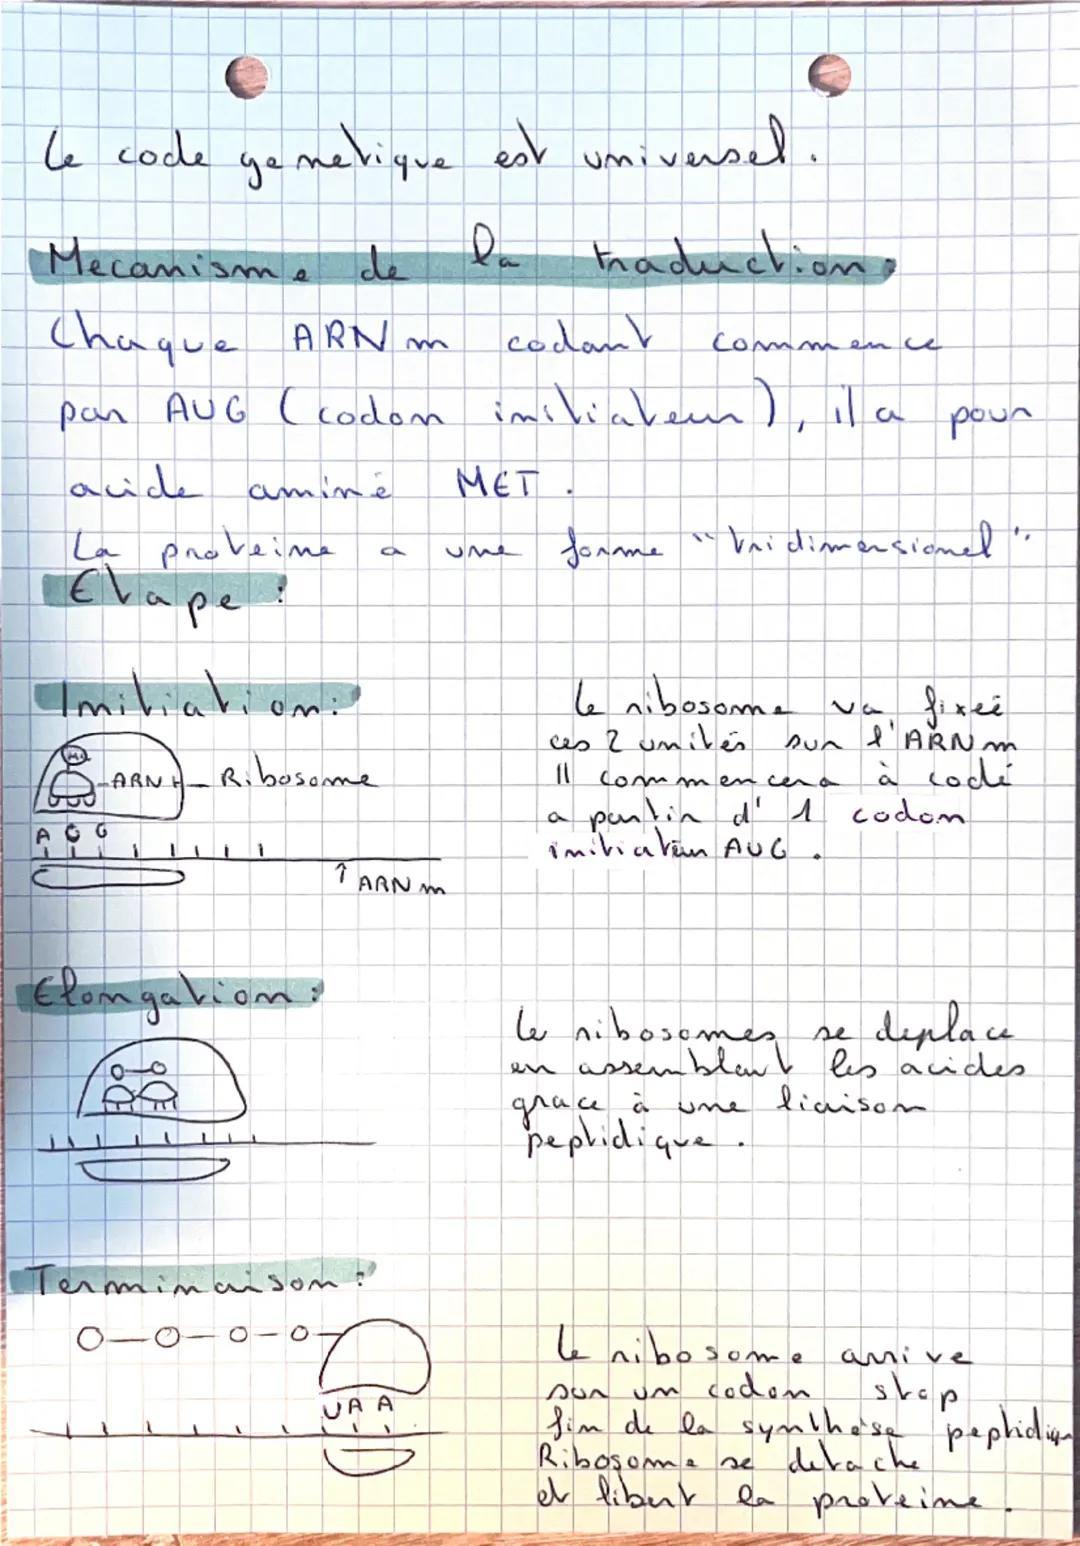 Le code genetique est universel.
Mecanisme de la traduction:
Chaque ARNm codant commence
par AUG (codon initiateur), il a pour
acide aminé MET.
La proteine a une forme "tridimensionel".
Etape :
Initiation:
Le ribosome va fixeé
ces 2 unités sur l'ARNm
Il commencera à codé
a partir d'1 codon
initiateur AUG.
ARNt
Ribosome
A U G
↑ ARNm
Elongation:
Le ribosomes se deplace
en assemblant les acides
grace à une liaison
peptidique.
Terminaison:
Le ribosome arrive
sur un codon stop
fin de la synthèse
Ribosome se detache
et libert la proteine.
UAA